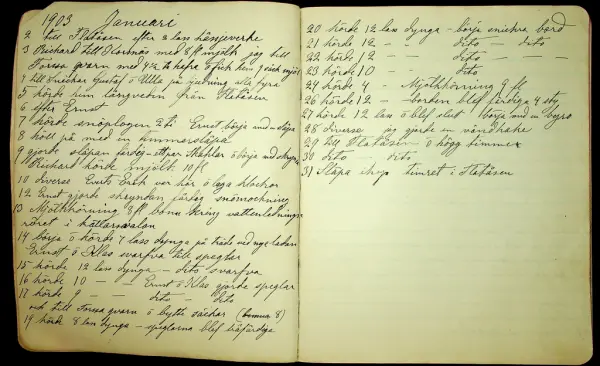 1903 Januari
2 till Flatåsen efter 8 lass hässjevirke
3 Richard till Hornnäs med 8 ft mjölk jag till
Forssa qvarn med 4 sk. hafre o fick hem 9 säck mjöl
4 till Snickar Gustaf o Ulla på julning alla fyra
5 körde hem långveden från Flatåsen
6 efter Ernst
7 körde snöplogen Ernst börja med släpa
8 höll på med en timmersläpa
9 gjorde släpan färdig o börja med skrynda
Richard körde mjölk 10 ft
10 diverse Everts Erik var här o laga klockor
12 Ernst gjorde skryndan färdig snömockning
13 Mjölkkörning 8 ft bona kring vattenledningsröret
röret i källarsvalen
14 börja o körde 7 lass dynga på träde vid nya ladan
Ernst o Klas svarfva till speglar
15 körde 12 lass dynga - dito svarfva
16 körde 10 - - Ernst o Klas gjorde speglar
17 körde 9 - - dito - dito
och till Forssa qvarn o bytte säckar (tunnor 8)
19 körde 8 lass dynga - speglarna blef träfärdiga
20 körde 12 lass dynga - börja snickra bord
21 körde 12 - - dito - dito
22 körde 12 - - dito
23 körde 10 dito
24 körde 4 - Mjölkkörning 9 ft
26 körde 12 - borden blef färdiga 4 sty
27 körde 12 lass o blef slut börja med en byrå
28 diverse jag gjorde en vändhake
29 till Flatåsen o högg timmer
30 dito dito
31 släpa ihop timret i Flatåsen